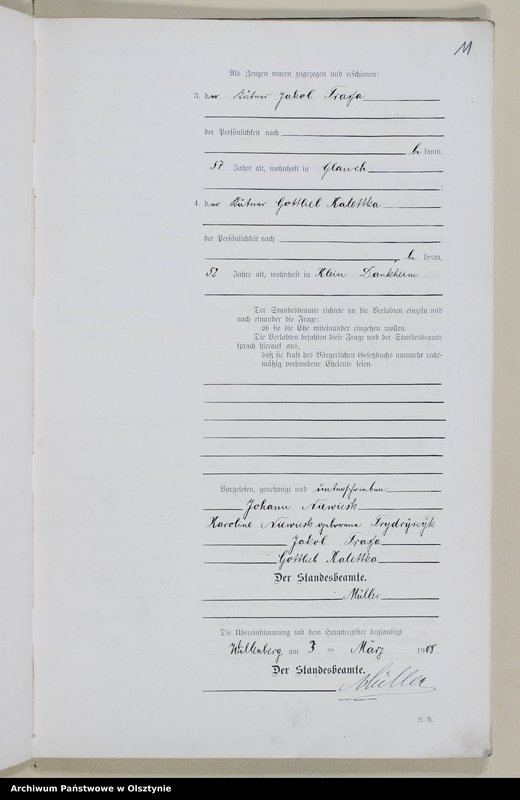 11
Als Zeugen waren zugezogen und erschienen:
3. der Kätner Jakob
der Persönlichkeit nach
be kannt,
57 Jahre alt, wohnhaft in Glauch
4. der Kätner Gottlieb Kalettka
der Persönlichkeit nach
be kannt,
52 Jahre alt, wohnhaft in Klein Dankheim
Der Standesbeamte richtete an die Verlobten einzeln und
nach einander die Frage:
ob sie die Ehe miteinander eingehen wollen.
Die Verlobten bejahten diese Frage und der Standesbeamte
sprach hierauf aus,
daß sie kraft des Bürgerlichen Gesetzbuchs nunmehr recht-
mäßig verbundene Eheleute seien.
Vorgelesen, genehmigt und unterschrieben
Johann Niewiesk
Karoline Niewiesk geborene
Jakob
Gottlieb Kalettka
Der Standesbeamte.
Müller
Die Übereinstimmung mit dem Hauptregister beglaubigt
Willenberg am 3 ten März 1908
Der Standesbeamte.
Müller
N.R.
Archiwum Państwowe w Olsztynie